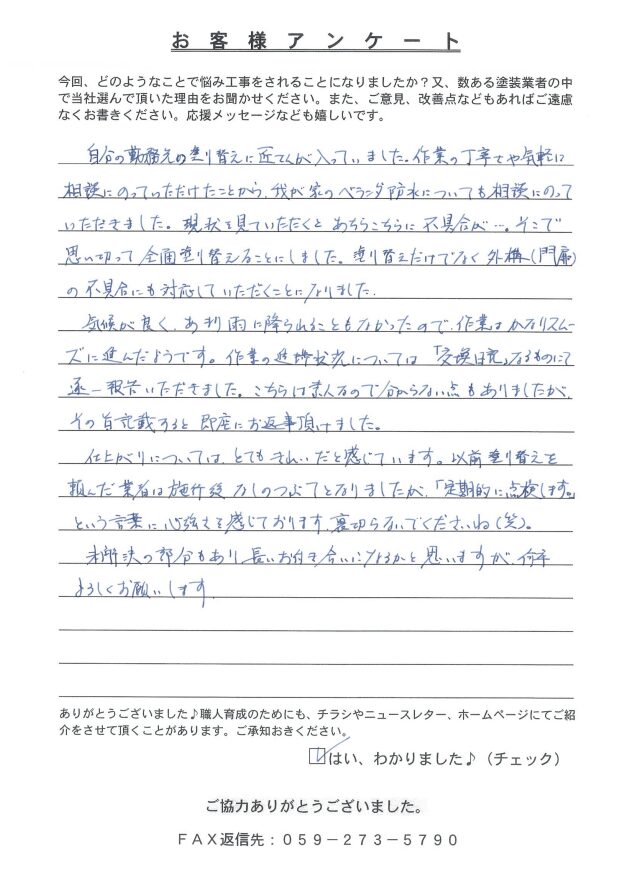 お客様アンケート
今回、どのようなことで悩み工事をされることになりましたか？又、数ある塗装業者の中
で当社選んで頂いた理由をお聞かせください。また、ご意見、改善点などもあればご遠慮
なくお書きください。応援メッセージなども嬉しいです。
自分の勤務先の塗り替えに匠さんが入っていました。作業の丁寧さや気軽に
相談にのっていただけたことから、我が家のベランダ防水についても相談にのって
いただきました。現状を見ていただくとあちらこちらに不具合が…。そこで
思い切って全面塗り替えることにしました。塗り替えだけでなく外構（門扉）
の不具合にも対応していただくことになりました。
気候が良く、あまり雨に降られることもなかったので、作業はかなりスムー
ズに進んだようです。作業の進捗状況については「交換日記」なるものにて
逐一報告いただきました。こちらは素人なので分からない点もありましたが、
その旨記載すると即座にお返事頂けました。
仕上がりについては、とてもきれいだと感じています。以前塗り替えを
頼んだ業者は施行後なしのつぶてとなりましたが、「定期的に点検します。」
という言葉に心強さを感じております。裏切らないでくださいね（笑）。
未解決の部分もあり、長いお付き合いになるかと思いますが、何卒
よろしくお願いします。
ありがとうございました♪職人育成のためにも、チラシやニュースレター、ホームページにてご紹
介をさせて頂くことがあります。ご承知おきください。
はい、わかりました♪（チェック）
ご協力ありがとうございました。
ＦＡＸ返信先：０５９－２７３－５７９０